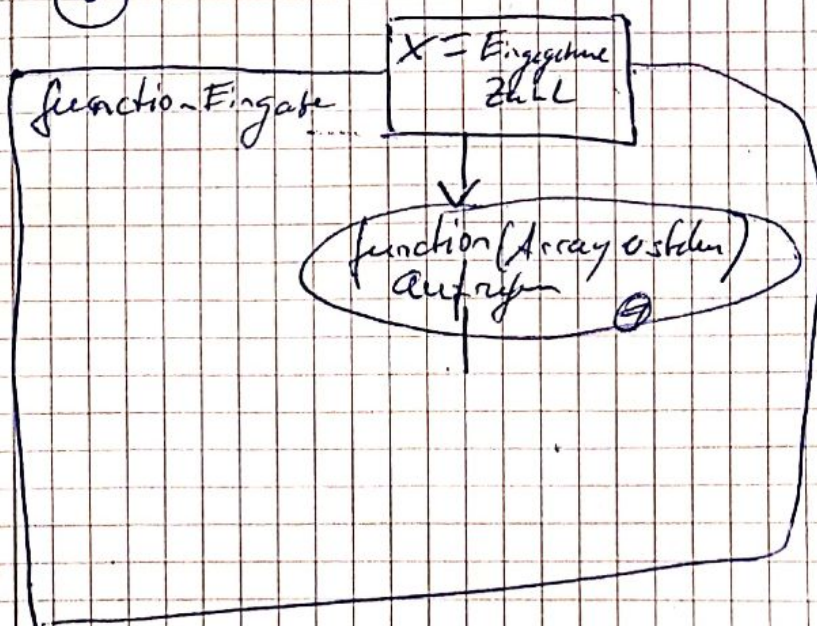 function Eingabe
X = Eingegebene
Zahl
function (Array erstellen)
aufrufen